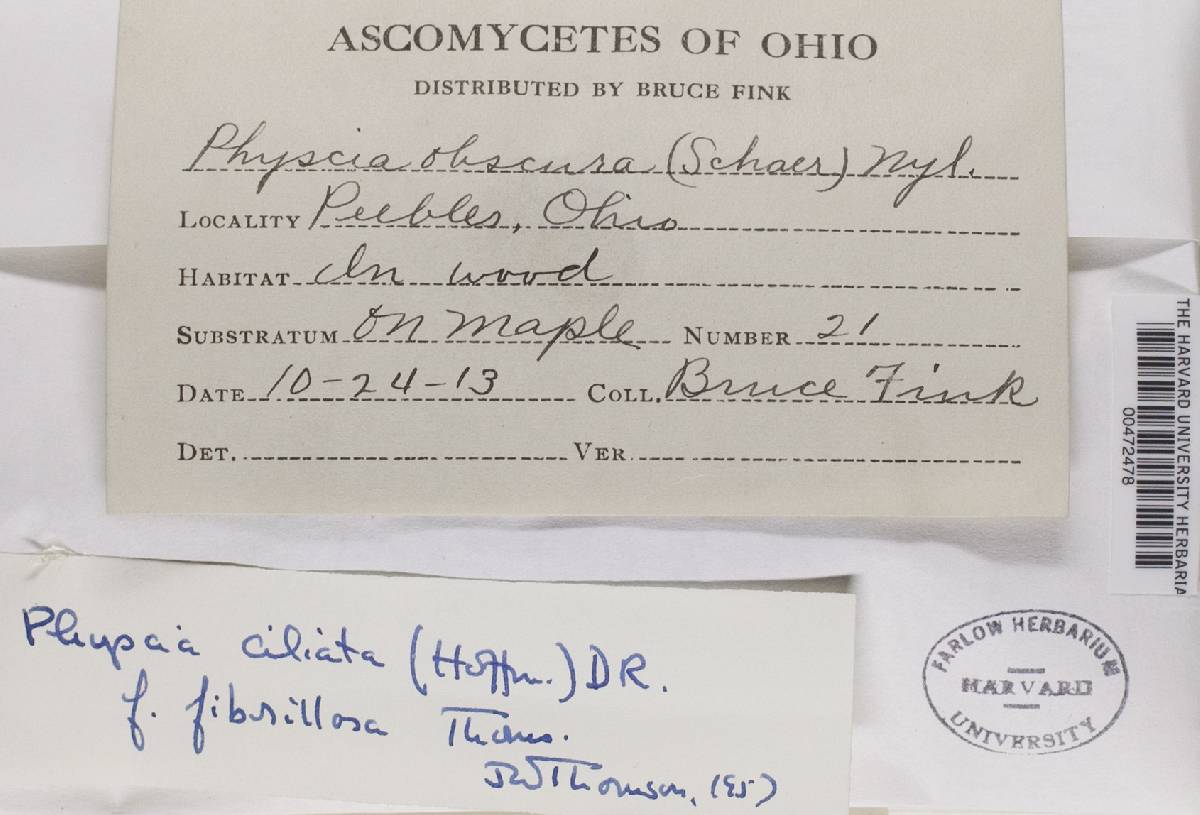 ASCOMYCETES OF OHIO
DISTRIBUTED BY BRUCE FINK
Physcia obscura (Schaer) Nyl.
LOCALITY Peebles, Ohio
HABITAT In wood
SUBSTRATUM On maple NUMBER 21
DATE 10-24-13 COLL. Bruce Fink
DET. VER.
THE HARVARD UNIVERSITY HERBARIA
00472478
Physcia ciliata (Hoffm.) DR.
f. fibrillosa Thoms.
JW Thomson,
FARLOW HERBARIUM
HARVARD
UNIVERSITY